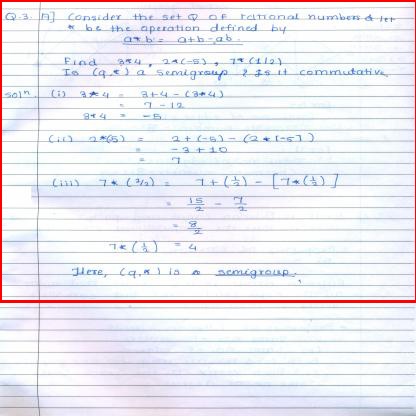 Q-3. A] Consider the set Q OF rational numbers & let
* be the operation defined by
a*b = a+b-ab.
Find 3*4, 2*(-5), 7*(1/2)
Is (Q,*) a semigroup? Is it commutative
Soln. (i) 3*4 = 3+4-(3*4)
= 7-12
3*4 = -5
(ii) 2*(5) = 2+(-5)-(2*[-5])
= -3+10
= 7
(iii) 7*(1/2) = 7+(1/2)-[7*(1/2)]
= 15/2 - 7/2
= 8/2
7*(1/2) = 4
Here, (Q,*) is a semigroup.